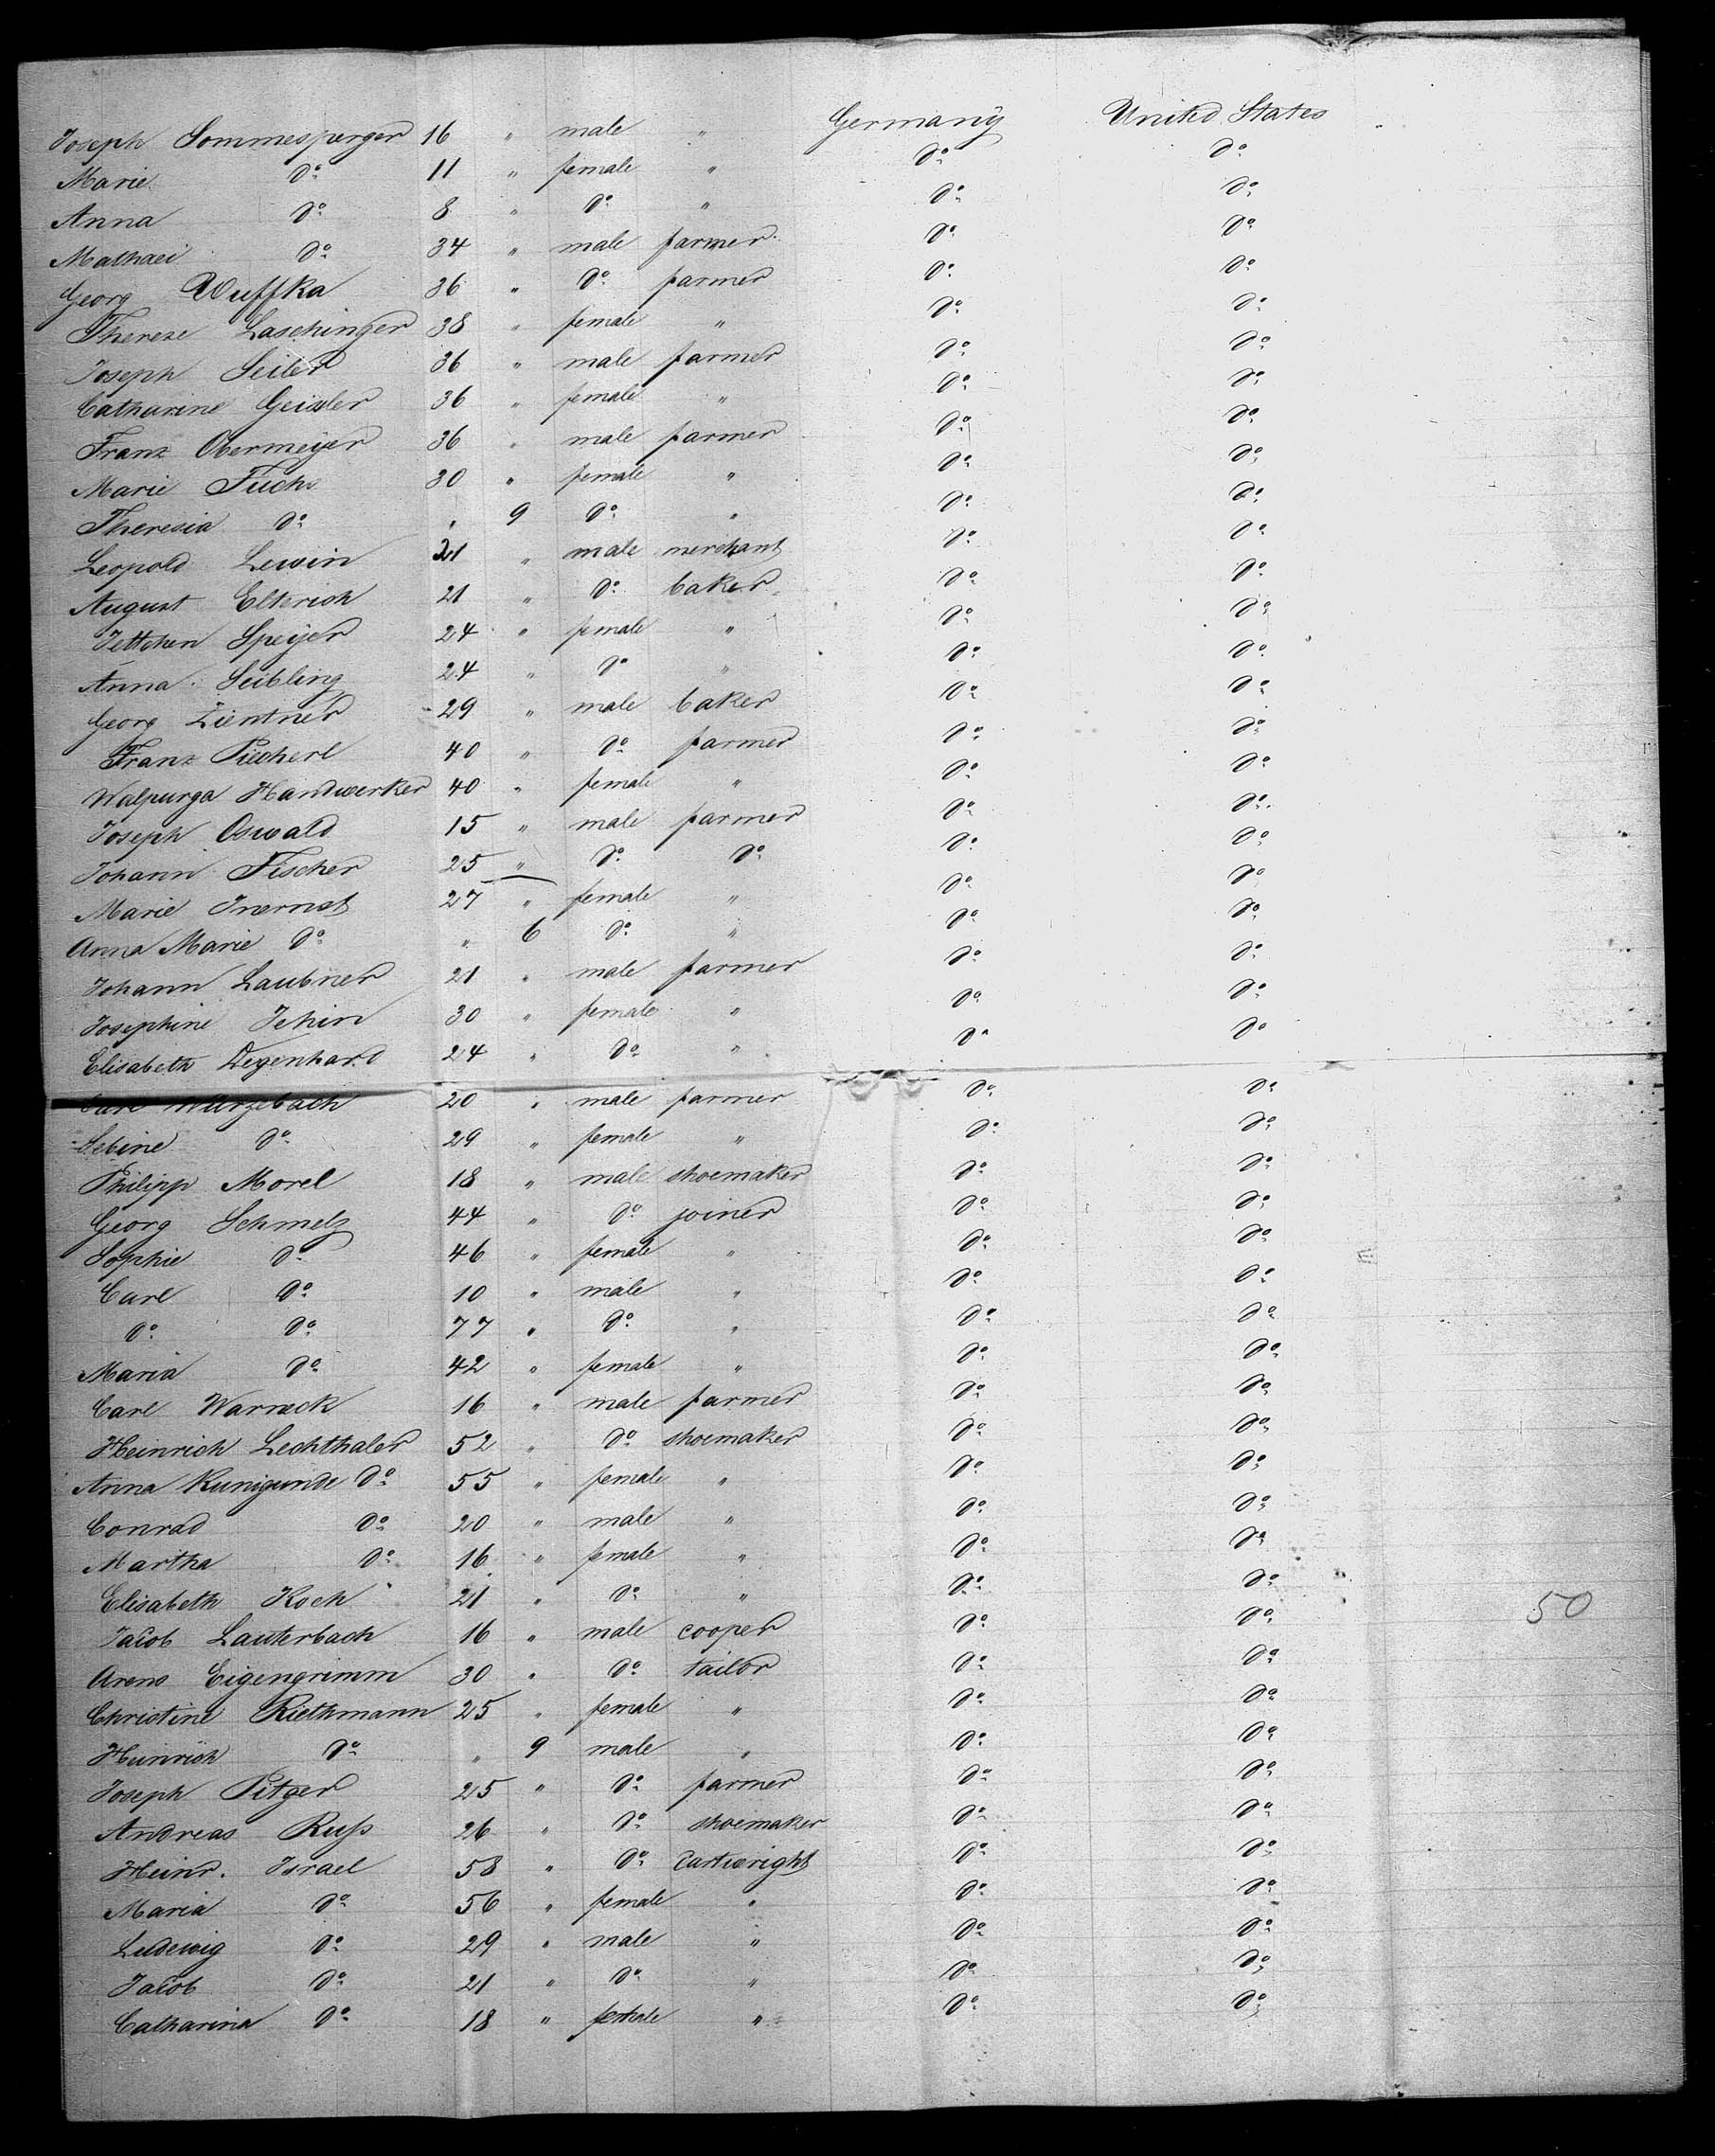 Joseph Sommesperger 16 " male " Germany United States
Marie do 11 " female " do do
Anna do 8 " do " do do
Mathaei do 34 " male farmer do do
Georg Wuffka 36 " do farmer do do
Therese Laschinger 38 " female " do do
Joseph Seiler 36 " male farmer do do
Catharine Geissler 36 " female " do do
Franz Obermeyer 36 " male farmer do do
Marie Fuchs 30 " female " do do
Theresia do " 9 do " do do
Leopold Lewin 21 " male merchant do do
August Elterich 21 " do baker do do
Jettchen Speyer 24 " female " do do
Anna Seibling 24 " do " do do
Georg Zientner 29 " male baker do do
Franz Piecherl 40 " do farmer do do
Walpurga Handwerker 40 " female " do do
Joseph Oswald 15 " male farmer do do
Johann Fischer 25 " do do do do
Marie 27 " female " do do
Anna Marie do " 6 do " do do
Johann Laubner 21 " male farmer do do
Josephine 30 " female " do do
Elisabeth Degenhard 24 " do " do do
Carl Wurzebach 20 " male farmer do do
Sebine do 29 " female " do do
Philipp Morel 18 " male shoemaker do do
Georg Schmelz 44 " do joiner do do
Sophie do 46 " female " do do
Carl do 10 " male " do do
do do 77 " do " do do
Maria do 42 " female " do do
Carl Warneck 16 " male farmer do do
Heinrich Lechthaler 52 " do shoemaker do do
Anna Kunigunde do 55 " female " do do
Conrad do 20 " male " do do
Martha do 16 " female " do do
Elisabeth Koch 21 " do " do do
Jacob Lauterbach 16 " male cooper do do 50
Arens Eigengrimm 30 " do tailor do do
Christine Riethmann 25 " female " do do
Heinrich do " 9 male " do do
Joseph Pitger 25 " do farmer do do
Andreas Ruß 26 " do shoemaker do do
Heinr. Israel 58 " do cartwright do do
Maria do 56 " female " do do
Ludewig do 29 " male " do do
Jacob do 21 " do " do do
Catharina do 18 " female " do do